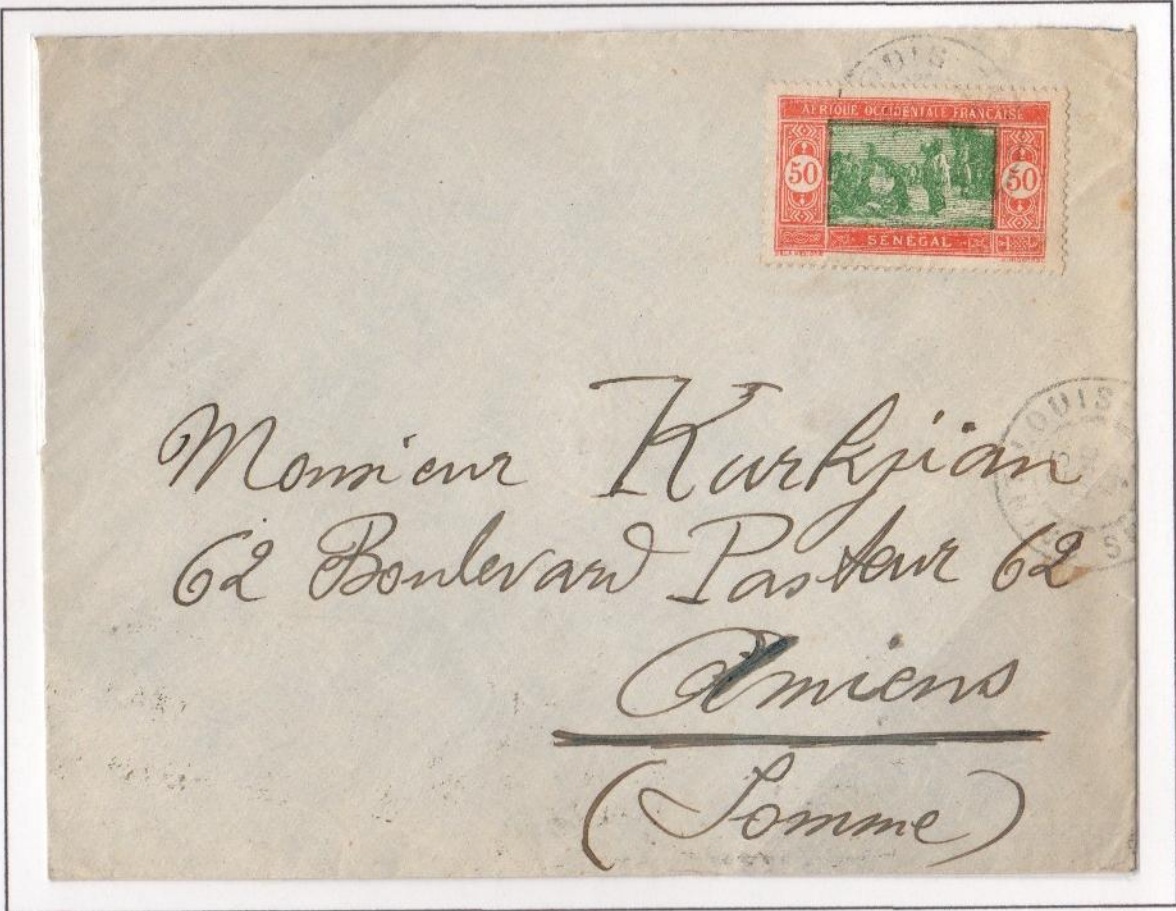 LOUIS
AFRIQUE OCCIDENTALE FRANÇAISE
50 50
SÉNÉGAL
Monsieur Kurkjian
LOUIS
62 Boulevard Pasteur 62
Amiens
(Somme)